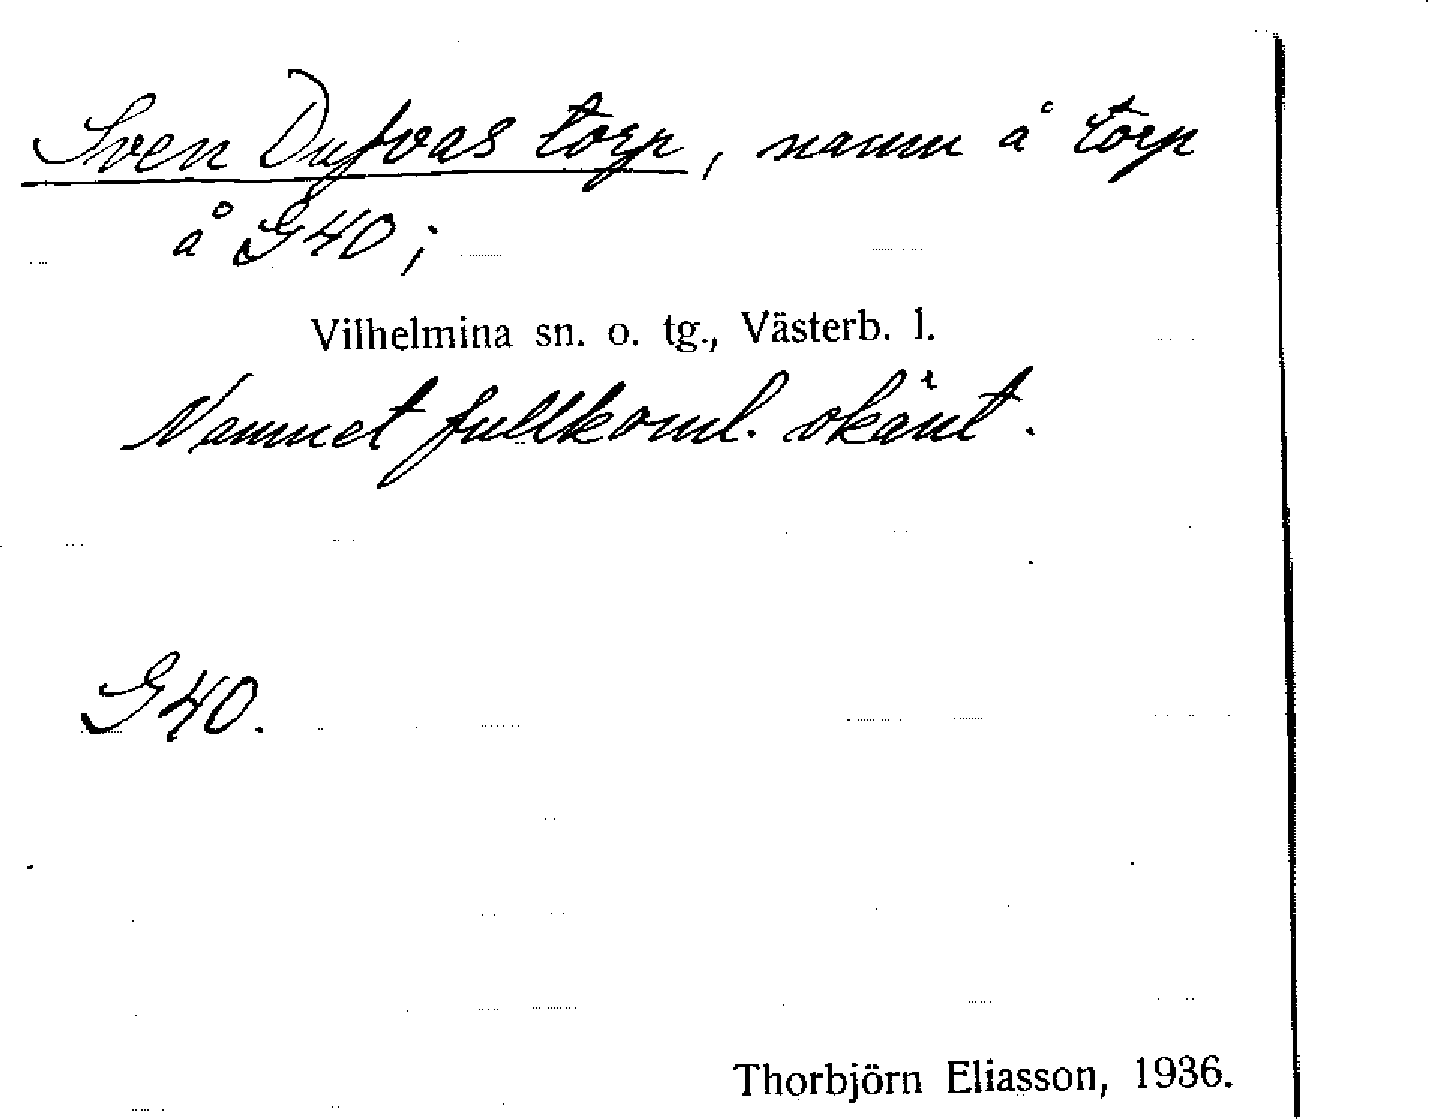 Sven Dufvas torp, namn å torp
å G40;
Vilhelmina sn. o. tg., Västerb. l.
Namnet fullkoml. okänt.
G40.
Thorbjörn Eliasson, 1936.